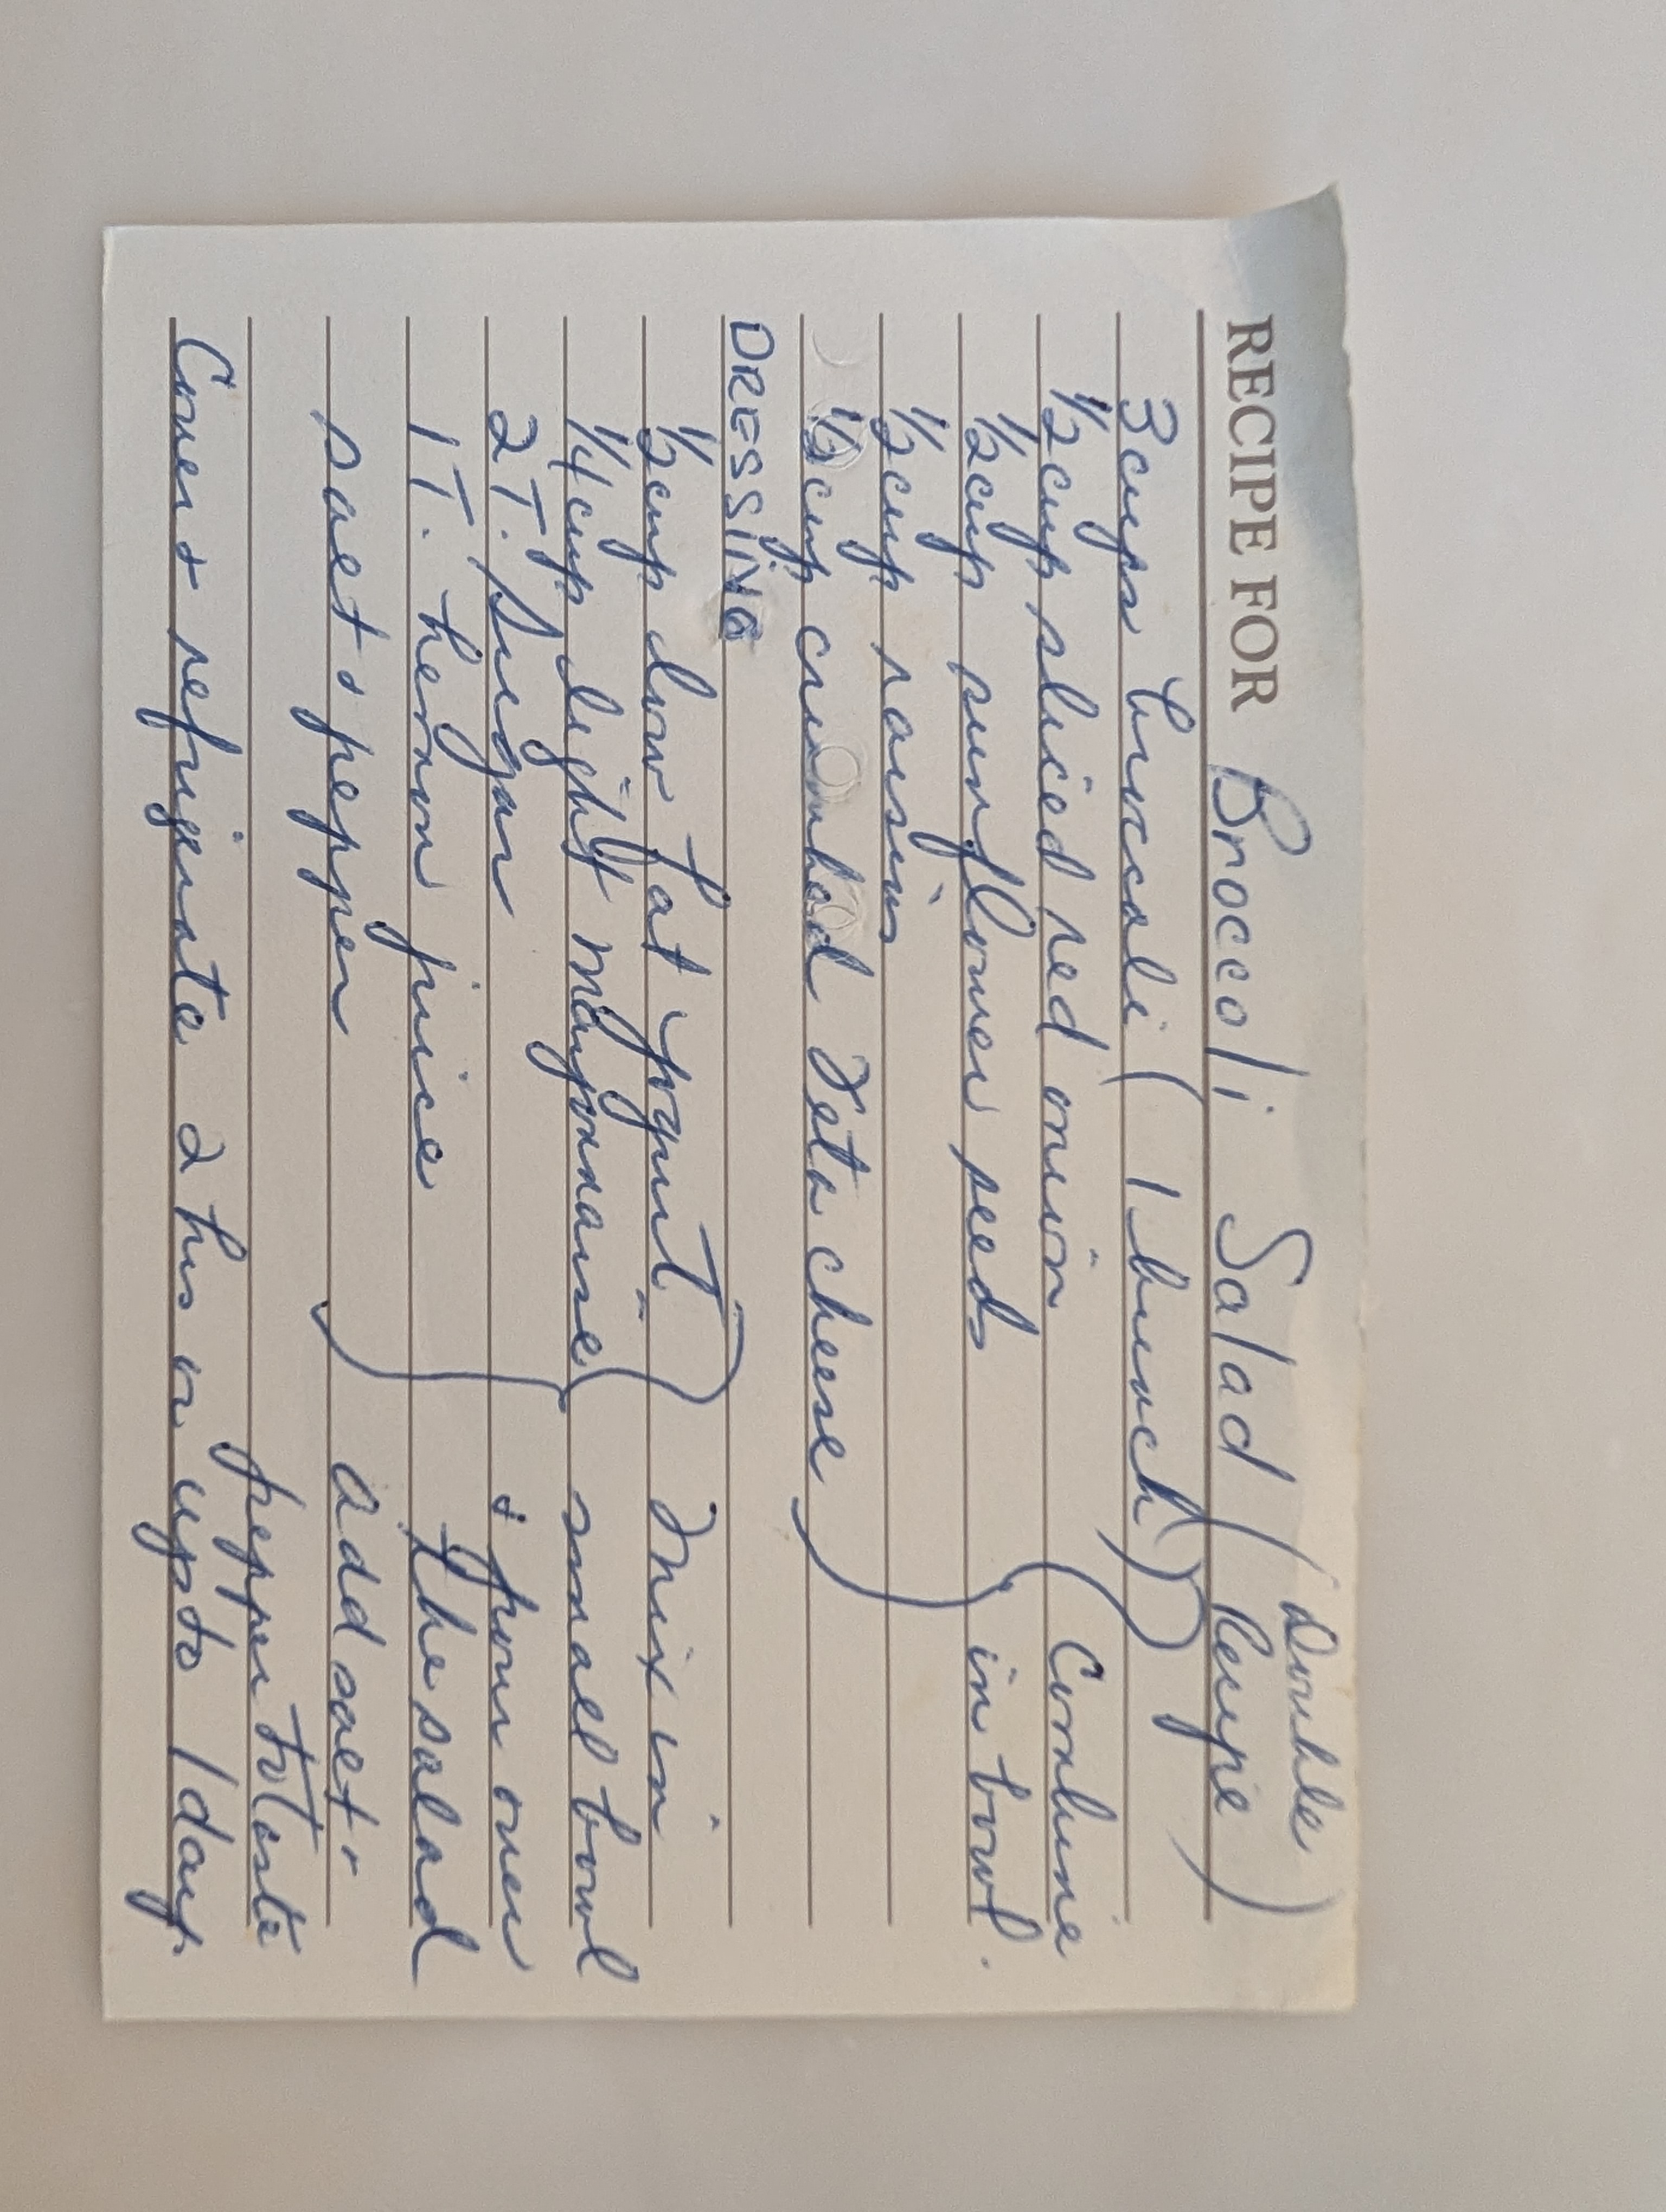 RECIPE FOR Broccoli Salad (Double Recipe)
3 cups broccoli (1 bunch)
1/2 cup sliced red onion
Combine
1/2 cup sunflower seeds
in bowl.
1/2 cup raisins
1/2 cup crumbled feta cheese
DRESSING
1/2 cup low fat yogurt
Mix in
1/4 cup light mayonnaise
small bowl
2 T. Sugar
& pour over
1 T. lemon juice
the salad
salt & pepper
add salt &
pepper to taste
Cover & refrigerate 2 hrs or up to 1 day.